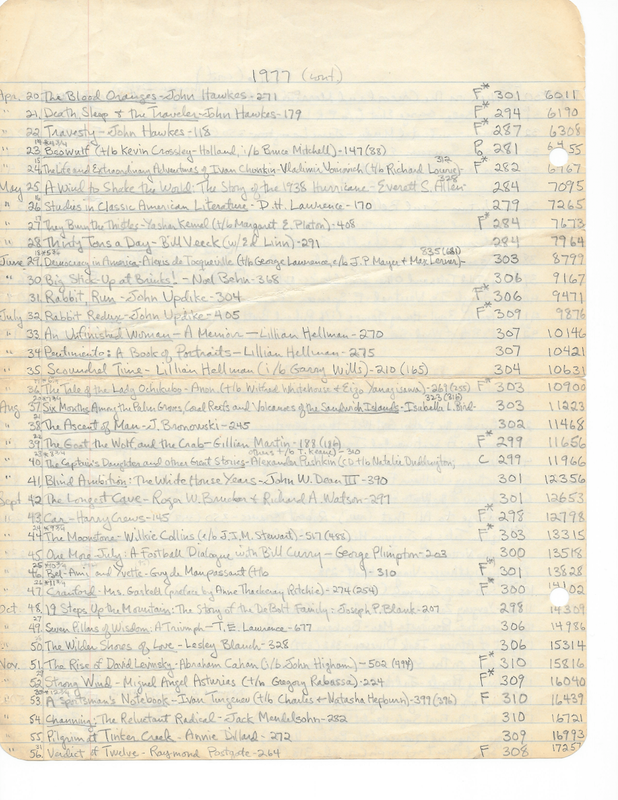 1977 (cont)
Apr. 20. The Blood Oranges - John Hawkes - 271 F* 301 6011
" 21. Death Sleep & The Traveler - John Hawkes - 179 F* 294 6190
" 22. Travesty - John Hawkes - 118 F* 287 6308
" 23. Beowulf (t/b Kevin Crossley-Holland, i/b Bruce Mitchell) - 147 (88) P 281 6455
" 24. The Life and Extraordinary Adventures of Ivan Chonkin - Vladimir Voinovich (t/b Richard Lourie) - 312 F* 282 6767
May 25. A Wind to Shake the World: The Story of the 1938 Hurricane - Everett S. Allen - 328 284 7095
" 26. Studies in Classic American Literature - D.H. Lawrence - 170 279 7265
" 27. They Burn the Thistles - Yashar Kemal (t/b Margaret E. Platon) - 408 F* 284 7673
" 28. Thirty Tons a Day - Bill Veeck (w/Ed Linn) - 291 284 7964
June 29. Democracy in America - Alexis de Toqueville (t/b George Lawrence, e/b J.P. Mayer & Max Lerner) - 835 (681) 303 8799
" 30. Big Stick-Up at Brinks! - Noel Behn - 368 306 9167
" 31. Rabbit, Run - John Updike - 304 F* 306 9471
July 32. Rabbit Redux - John Updike - 405 F* 309 9876
" 33. An Unfinished Woman - A Memoir - Lillian Hellman - 270 307 10146
" 34. Pentimento: A Book of Portraits - Lillian Hellman - 275 307 10421
" 35. Scoundrel Time - Lillian Hellman (i/b Garry Wills) - 210 (165) 304 10631
" 36. The Tale of the Lady Ochikubo - Anon. (t/b Wilfrid Whitehouse & Eizo Yanagisawa) - 269 (255) F* 303 10900
Aug 37. Six Months Among the Palm Groves, Coral Reefs and Volcanoes of the Sandwich Islands - Isabella L. Bird - 323 (316) 303 11223
" 38. The Ascent of Man - J. Bronowski - 245 302 11468
" 39. The Goat, the Wolf, and the Crab - Gillian Martin - 188 (186) F* 299 11656
" 40. The Captain's Daughter and other Great Stories - Alexander Pushkin (t/b Natalie Duddington, others t/b T. Keane) - 310 C 299 11966
" 41. Blind Ambition: The White House Years - John W. Dean III - 390 301 12356
Sept 42. The Longest Cave - Roger W. Brucker & Richard A. Watson - 297 301 12653
" 43. Car - Harry Crews - 145 F* 298 12798
" 44. The Moonstone - Wilkie Collins (e/b J.I.M. Stewart) - 517 (488) F* 303 13315
" 45. One More July: A Football Dialogue with Bill Curry - George Plimpton - 203 300 13518
" 46. Bel-Ami and Yvette - Guy de Maupassant (t/b ) - 310 F* 301 13828
" 47. Cranford - Mrs. Gaskell (preface by Anne Thackeray Ritchie) - 274 (254) F* 300 14102
Oct 48. 19 Steps Up the Mountain: The Story of the DeBolt Family - Joseph P. Blank - 207 298 14309
" 49. Seven Pillars of Wisdom: A Triumph - T.E. Lawrence - 677 306 14986
" 50. The Wilder Shores of Love - Lesley Blanch - 328 306 15314
Nov. 51. The Rise of David Levinsky - Abraham Cahan (i/b John Higham) - 502 F* 310 15816
" 52. Strong Wind - Miguel Angel Asturias (t/b Gregory Rabassa) - 224 F* 309 16040
" 53. A Sportsman's Notebook - Ivan Turgenev (t/b Charles & Natasha Hepburn) - 399 (396) F 310 16439
" 54. Channing: The Reluctant Radical - Jack Mendelsohn - 282 310 16721
" 55. Pilgrim at Tinker Creek - Annie Dillard - 272 309 16993
" 56. Verdict of Twelve - Raymond Postgate - 264 F 308 17257